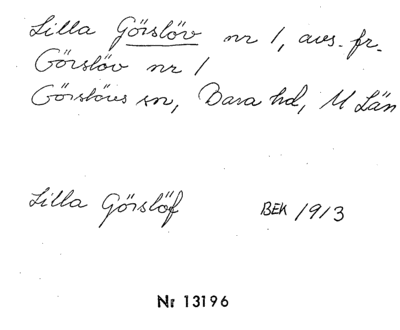 Lilla Görslöv nr 1, avs. fr.
Görslöv nr 1
Görslövs sn, Bara hd, M Län
Lilla Görslöf BEK 1913
Nr 13196